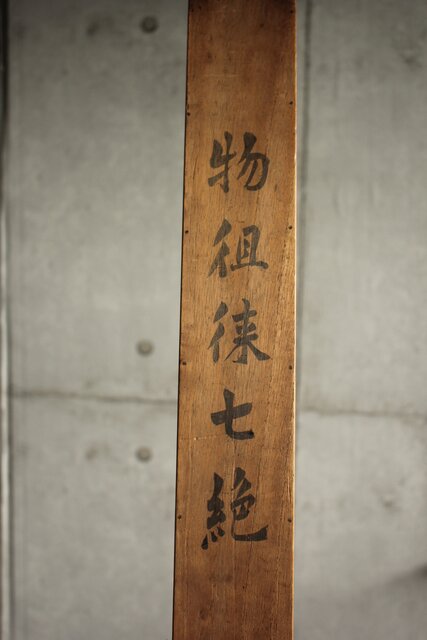 物徂徠七絶